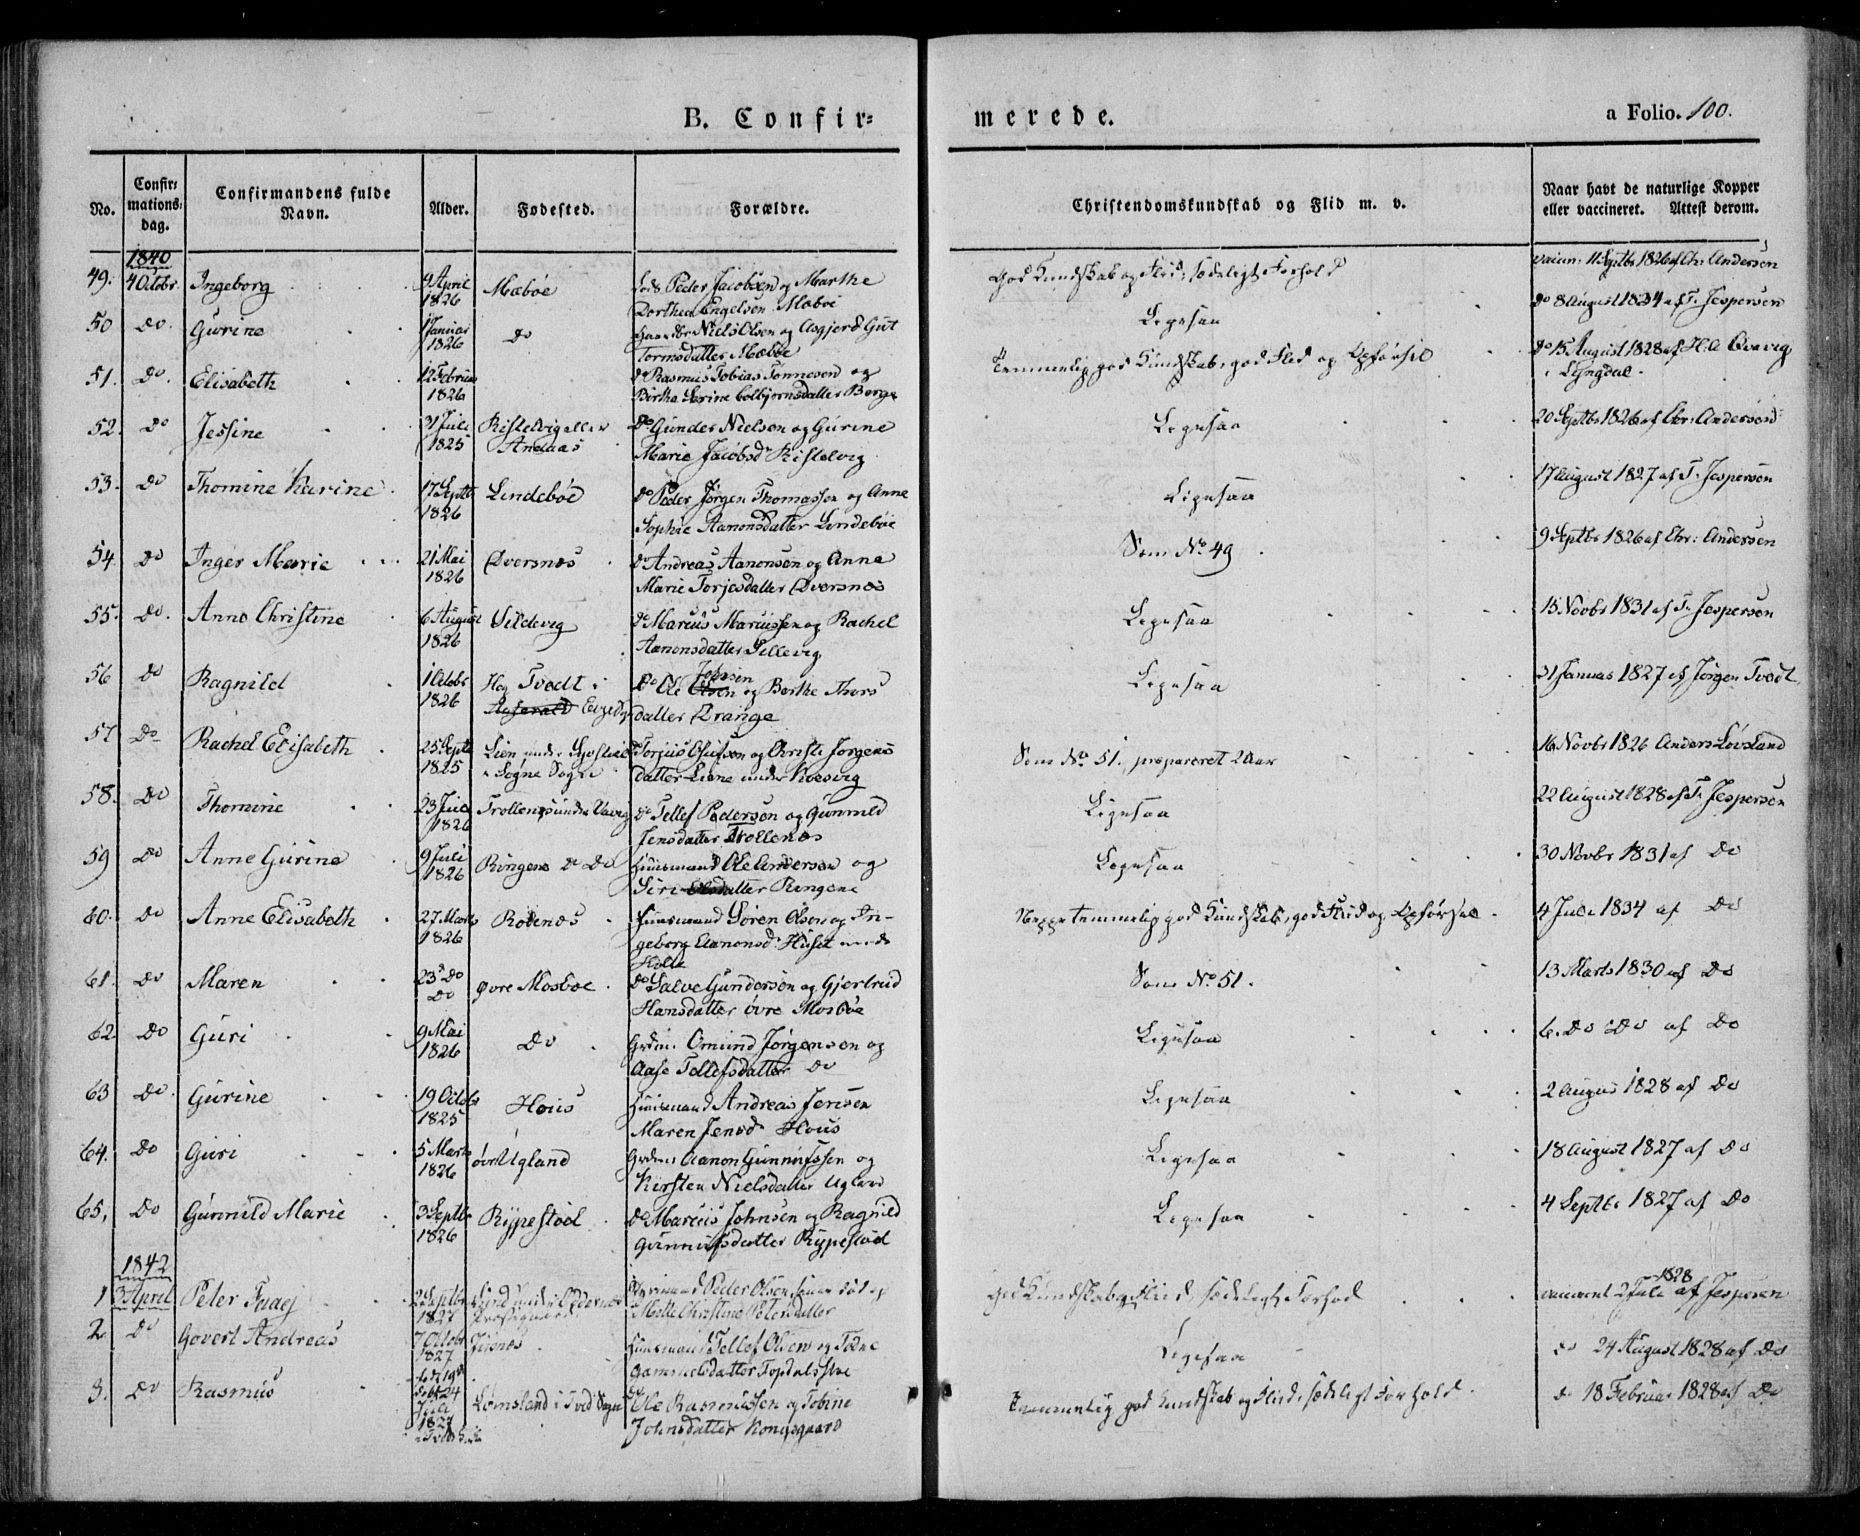 B. Confir=
merede.
a Folio. 100.
No.
Confir=
mations=
dag.
Confirmandens fulde
Navn.
Alder.
Fødested.
Forældre.
Christendomskundskab og Flid m. v.
Naar havt de naturlige Kopper
eller vaccineret. Attest derom.
1840
49. 4 Octobr Ingeborg 9 April 1826 Mæbøe Peder Jacobsen og Marthe
Dorthea Engelsen Mæbøe
God Kundskab og Flid, sædeligt Forhold
11 Septbr 1826 af Chr. Andersen
50 Do. Gurine 1 Januar 1826 Do Niels Olsen og Asgjerd Gut
Tormsdatter Mæbøe
Ligesaa
Do 8 August 1834 af T. Jespersen
51. Do. Elisabeth 12 Februar 1826 Do Rasmus Tobias Tønnesen og
Birthe Serine
Temmelig god Kundskab, god Flid og Opførsel
Do 15 August 1828 af
i Lyngdal.
52. Do Jessine 31 Juli 1825 Ristelvig eller
Do Gunder Nielsen og Gurine
Marie Jacobsd. Ristelvig
Ligesaa
20 Septbr 1826 af Chr: Andersen
53. Do Thomine Karine 17 Septbr 1826 Lindebøe Do Peder Jørgen Thomassen og Anne
Sophie Aanonsdatter Lindebøe
Ligesaa
17 August 1827 af T. Jespersen
54. Do Inger Marie 21 Mai 1826 Øversnes Do Andreas Aanonsen og Anne
Marie Torjesdatter Øversnes
Som No 49
9 Septbr 1826 af Chr: Andersen
55. Do. Anne Christine 6 August 1826 Sildevig Do Marcus Marcussen og Rachel
Aanonsdatter Sillevig
Ligesaa
15 Novbr 1831 af T. Jespersen
56 Do Ragnild 1 Octobr 1826 Tvedt i
Do Ole Olsen og Berthe Thors
datter Drange
Ligesaa
31 Januar 1827 af Jørgen Tvedt
57 Do Rachel Elisabeth 25 Septbr 1825 Lien under
i Søgne Sogn
Torjus Olufsen og Christi Jørgens
datter Liene under Kosvig
Som No 51. præpareret 2 Aar
16 Novbr 1826 Anders Løvland
58. Do Thomine 23 Juli 1826 Trollenes under
Do Tellef Pedersen og Gunnild
Jensdatter Trollenes
Ligesaa
22 August 1828 af T. Jespersen
59 Do Anne Gurine 9 Juli 1826 Ringene Do Do Huusmand Ole Andersen og
Siri Olsdatter Ringene
Ligesaa
30 Novbr 1831 af Do
60. Do Anne Elisabeth 27 Marts 1826 Rodenes Huusmand Søren Olsen og In-
geborg Aanonsd.
Neppe temmelig god Kundskab, god Flid og Opførsel.
4 Juli 1834 af Do
61. Do Maren 23 Do Do Øvre Mosbøe Do Salve Gundersen og Gjertrud
Hansdatter øvre Mosbøe
Som No 51.
13 Marts 1830 af Do
62. Do Guri 9 Mai 1826 Do Omund Jørgensen og
Aase Tellefsdatter Do
Ligesaa
6. Do Do af Do
63 Do. Gurine 19 Octobr 1825 Hous Huusmand Andreas Jensen
Maren Jensd. Hous
Ligesaa
2 August 1828 af Do
64. Do Guri 5 Marts 1826 øvr Ugland Aanon Gunnufssen og
Kirsten Nielsdatter Ugland
Ligesaa
18 August 1827 af Do
65. Do Gunnild Marie 3 Septbr 1826 Rypestøl Do Marcus Johnsen og Ragnild
Gunnufsdatter Rypestøl
Ligesaa
4 Septbr 1827 af Do
1842
1 3 April Peter Faaej 2 Septbr 1827
Peder Olsen
Mette Christine Petersdatter
God Kundskab og Flid, sædeligt Forhold
vaccineret 2 Juli 1828 af Jespersen
2 Do Govert Andreas 7 Octobr 1827
Huusmand Tellef Olsen og
Gamuelsdatter
Ligesaa
Do 24 August 1828 af Do
3. Do Rasmus 24 Juli 1827
Lømsland i Tvid Sogn
Ole Rasmussen og Tobine
Johnsdatter Kongsgaard
Temmelig god Kundskab og Flid, sædeligt Forhold.
Do 18 Februar 1828 af Do